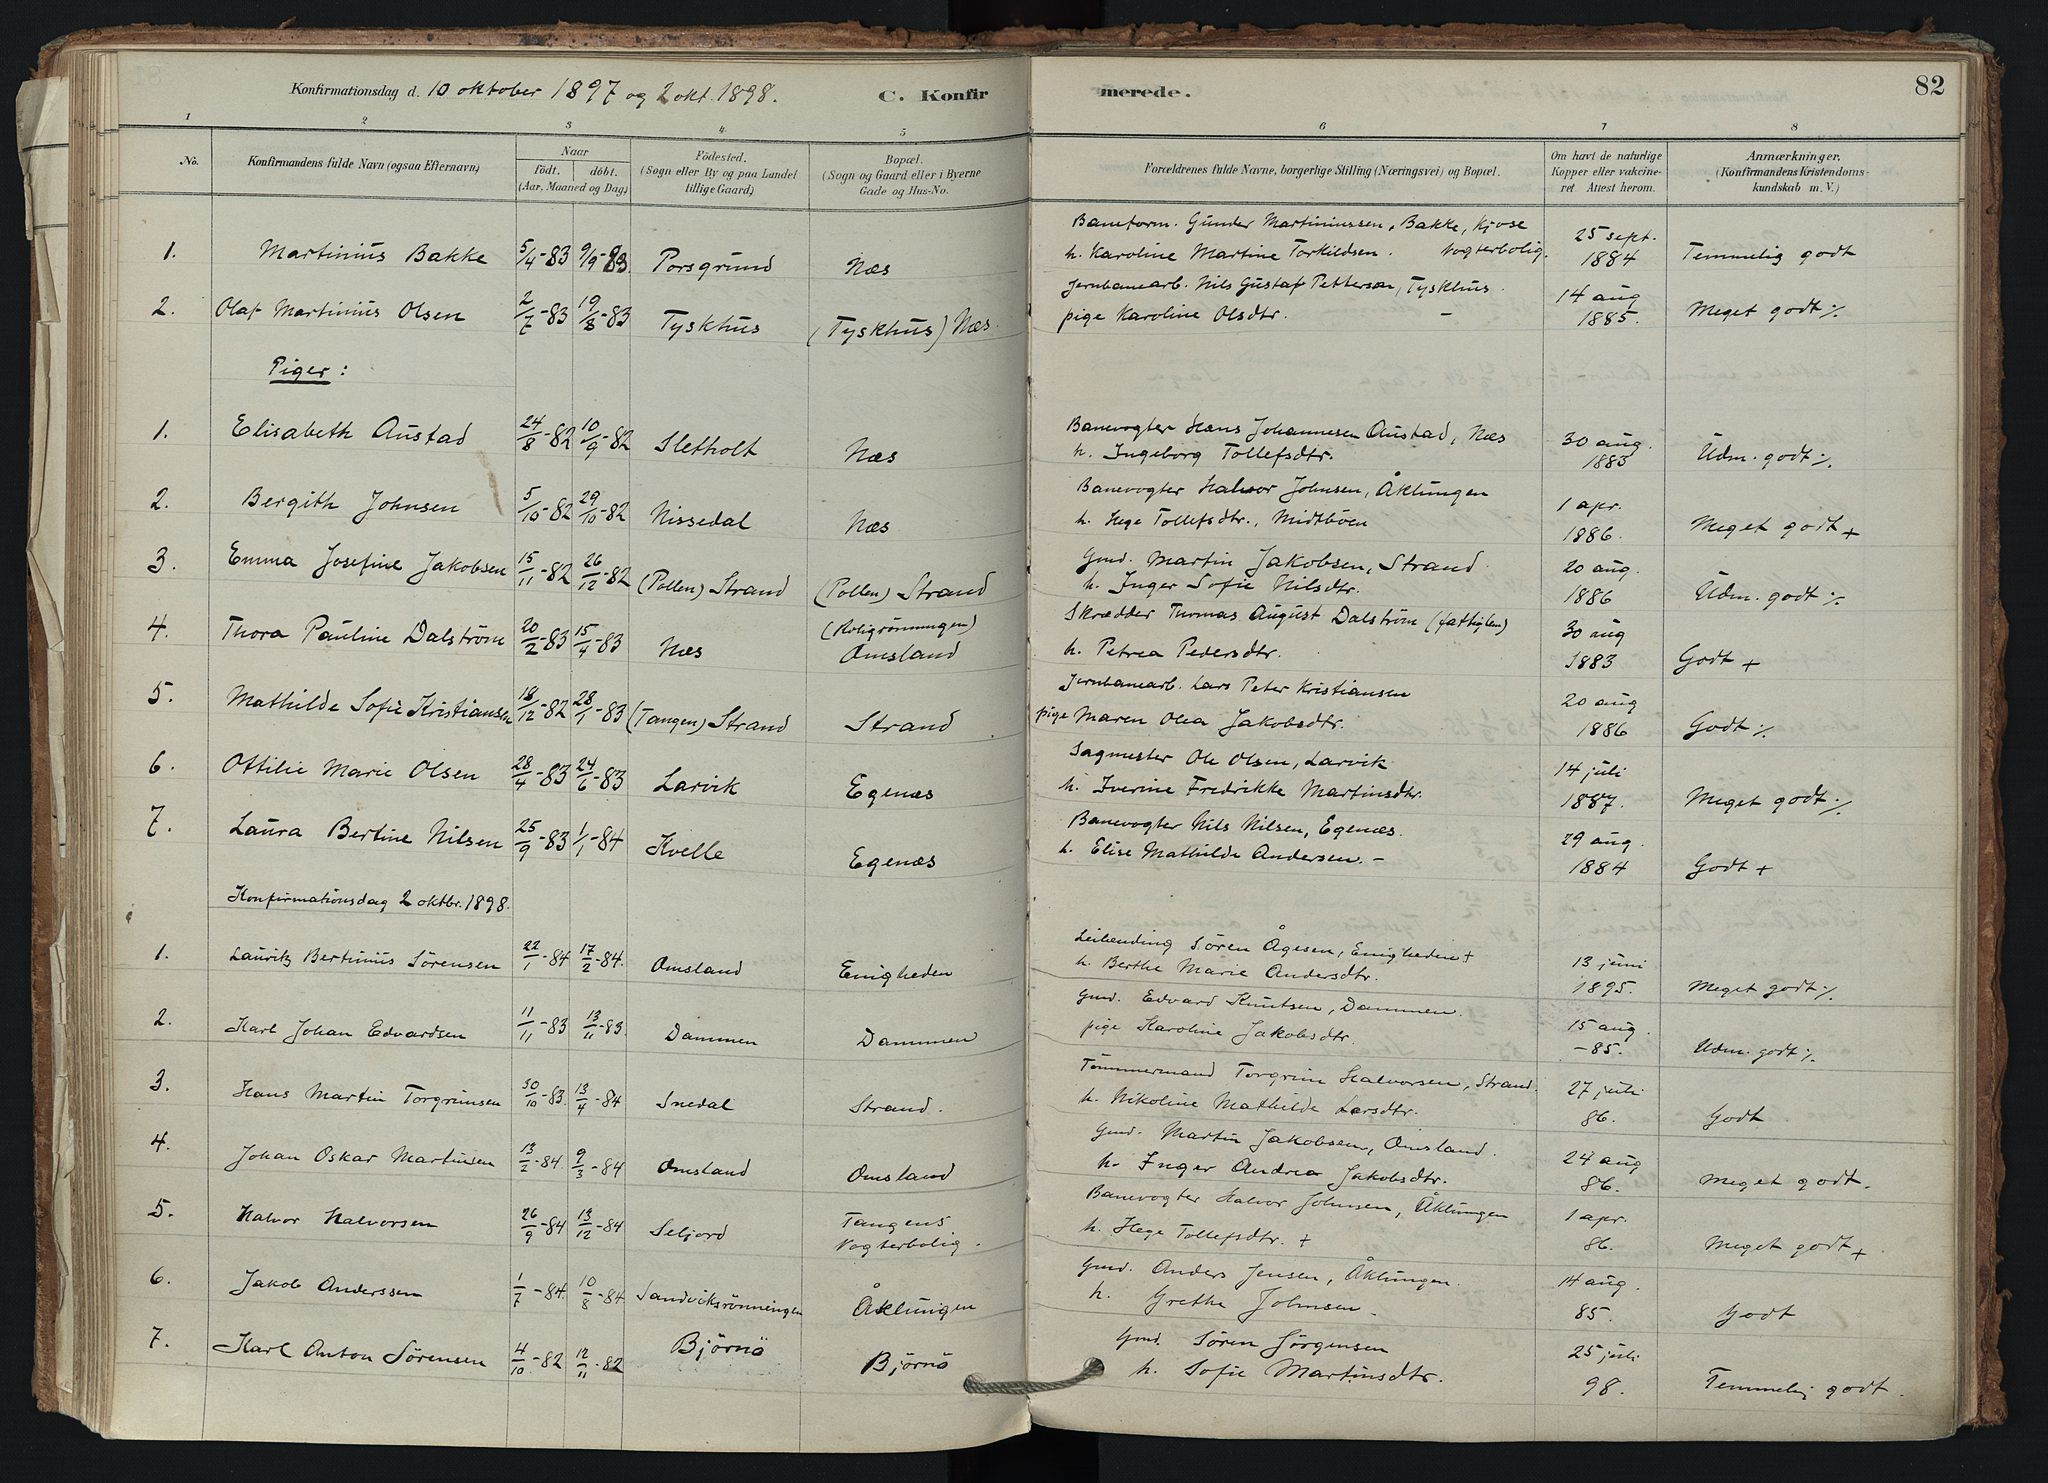 82
Konfirmationsdag d. 10 oktober 1897 og 2 okt. 1898. C. Konfirmerede.
1 2 3 4 5 6 7 8
No. Konfirmandens fulde Navn (ogsaa Efternavn) Naar födt. döbt. (Aar, Maaned og Dag) Födested. (Sogn eller By og paa Landet tillige Gaard) Bopæl. (Sogn og Gaard eller i Byerne Gade og Hus-No. Forældrenes fulde Navne, borgerlige Stilling (Næringsvei) og Bopæl. Om havt de naturlige Kopper eller vakcineret. Attest herom. Anmærkninger. (Konfirmandens Kristendomskundskab m. V.)
1. Martinius Bakke 5/4-83 9/9-83 Porsgrund Næs Baneform. Gunder Martiniussen, Bakke, Kjose 25 sept. 1884 Temmelig godt
h. Karoline Martine Torkildsen. Vogterbolig.
2. Olaf Martinius Olsen 2/7-83 19/8-83 Tyskhus (Tyskhus) Næs. Jernbanearb. Nils Gustaf Petterson, Tyskhus. 14 aug 1885. Meget godt ./.
pige Karoline Olsdtr. —
Piger:
1. Elisabeth Austad 24/8-82 10/9-82 Sletholt Næs Banevogter Hans Johannesen Austad, Næs 30 aug. 1883 Udm. godt ./.
h. Ingeborg Tollefsdtr.
2. Bergith Johnsen 5/10-82 29/10-82 Nissedal Næs Banevogter Halvor Johnsen, Åklungen 1 apr. 1886. Meget godt +
h. Hege Tollefsdtr., Midtböen
3. Emma Josefine Jakobsen 15/11-82 26/12-82 (Pollen) Strand (Pollen) Strand Gmd. Martin Jakobsen, Strand. 20 aug. 1886 Udm. godt ./.
h. Inger Sofie Nilsdtr.
4. Thora Pauline Dalström 20/2-83 15/4-83 Næs (Roligrönningen) Omsland Skrædder Thomas August Dalström (fattiglem) 30 aug 1883 Godt +
h. Petrea Pedersdtr.
5. Mathilde Sofie Kristiansen 18/12-82 28/1-83 (Tangen) Strand Strand Jernbanearb. Lars Peter Kristiansen 20 aug 1886 Godt ./.
pige Maren Olea Jakobsdtr.
6. Ottilie Marie Olsen 28/4-83 24/6-83 Larvik Egenæs Sagmester Ole Olsen, Larvik 14 juli 1887. Meget godt ./.
h. Iverine Fredrikke Martinsdtr.
7. Laura Bertine Nilsen 25/9-83 1/1-84 Kvelle Egenæs Banevogter Nils Nilsen, Egenæs. 29 aug. 1884 Godt +
h. Elise Mathilde Andersen. –
Konfirmationsdag 2 oktbr. 1898.
1. Lauritz Bertinius Sörensen 22/1-84 17/2-84. Omsland Enigheden Leilending Sören Ågesen, Enigheden + 13 juni 1895. Meget godt ./.
h. Berthe Marie Andersdtr.
2. Karl Johan Edvardsen 11/11-83 13/11-83. Dammen Dammen Gmd. Edvard Knutsen, Dammen. 15 aug. -85. Udm. godt ./.
pige Karoline Jakobsdtr.
3. Hans Martin Torgrimsen 30/10-83. 13/4-84 Snedal Strand. Tömmermand Torgrim Halvorsen, Strand. 27 juli 86. Godt
h. Nikoline Mathilde Larsdtr.
4. Johan Oskar Martinsen 13/2-84. 9/3-84 Omsland Omsland Gmd. Martin Jakobsen, Omsland. 24 aug 86. Meget godt.
h. Inger Andrea Jakobsdtr.
5. Halvor Halvorsen 26/9-84 13/12-84 Seljord Tangens Vogterbolig. Banevogter Halvor Johnsen, Åklungen 1 apr. 86. Meget godt +
h. Hege Tollefsdtr. +
6. Jakob Anderssen 1/7-84. 10/8-84 Sandviksrönningen Åklungen Gmd. Anders Jensen, Åklungen. 14 aug. 85. Godt
h. Grethe Johnsen.
7. Karl Anton Sörensen 4/10-82 12/11-82 Björnö Björnö Gmd. Sören Jörgensen 25 juli 98. Temmelig godt.
h. Sofie Martinsdtr.